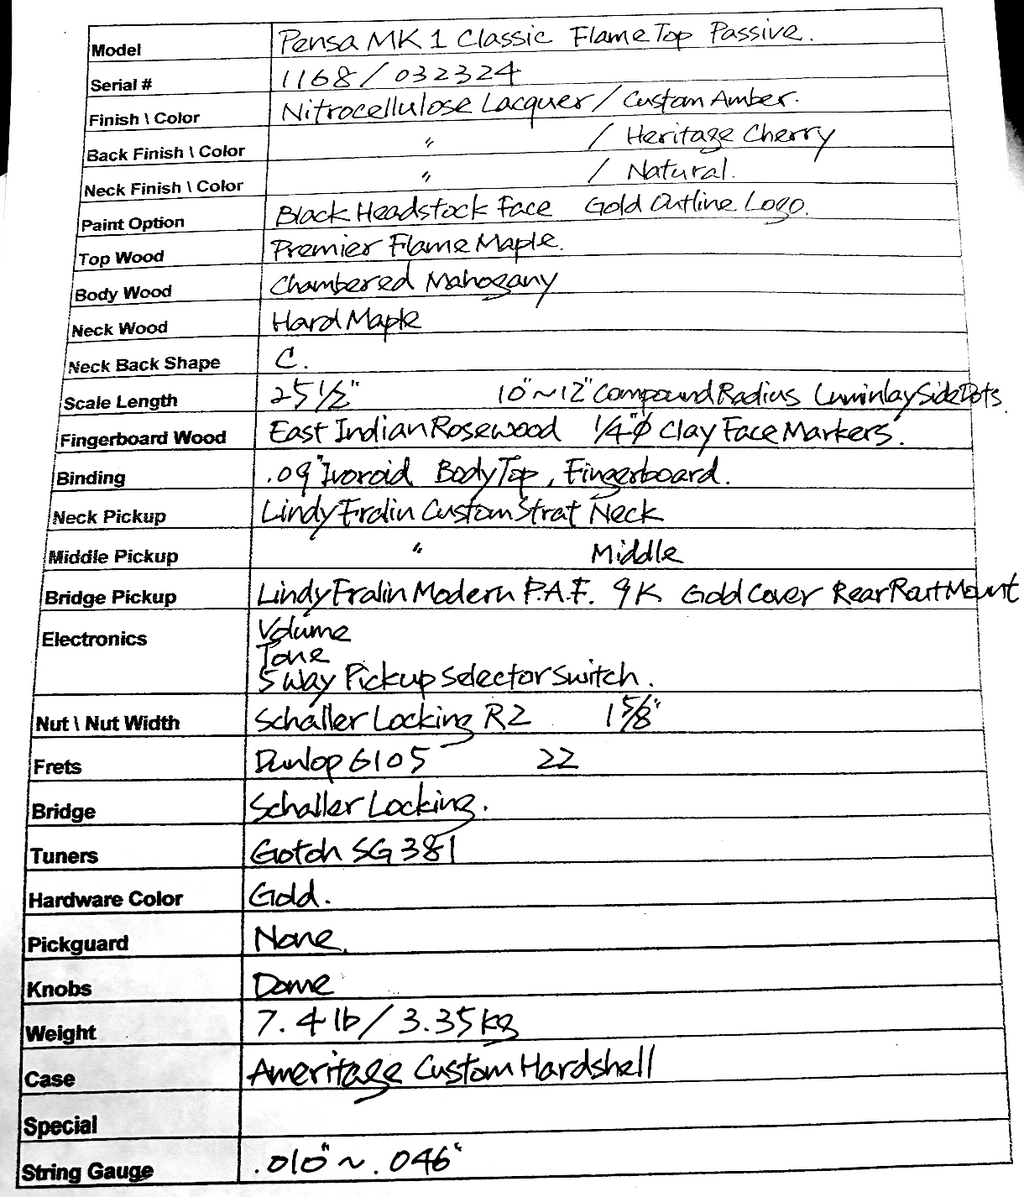 Model Pensa MK 1 Classic Flame Top Passive.
Serial # 1168 / 032324
Finish \ Color Nitrocellulose Lacquer / Custom Amber.
Back Finish \ Color " / Heritage Cherry
Neck Finish \ Color " / Natural.
Paint Option Black Headstock Face Gold Outline Logo.
Top Wood Premier Flame Maple.
Body Wood Chambered Mahogany
Neck Wood Hard Maple
Neck Back Shape C.
Scale Length 25 1/2" 10"~12" Compound Radius Luminlay Side Dots.
Fingerboard Wood East Indian Rosewood 1/4"φ Clay Face Markers.
Binding .09" Ivoroid Body Top, Fingerboard.
Neck Pickup Lindy Fralin Custom Strat Neck
Middle Pickup " Middle
Bridge Pickup Lindy Fralin Modern P.A.F. 9K Gold Cover Rear Rout Mount
Electronics Volume
Tone
5 Way Pickup Selector Switch.
Nut \ Nut Width Schaller Locking R2 1 5/8"
Frets Dunlop 6105 22
Bridge Schaller Locking.
Tuners Gotoh SG 381
Hardware Color Gold.
Pickguard None.
Knobs Dome
Weight 7.4 lb / 3.35 kg
Case Ameritage Custom Hardshell
Special
String Gauge .010" ~ .046"